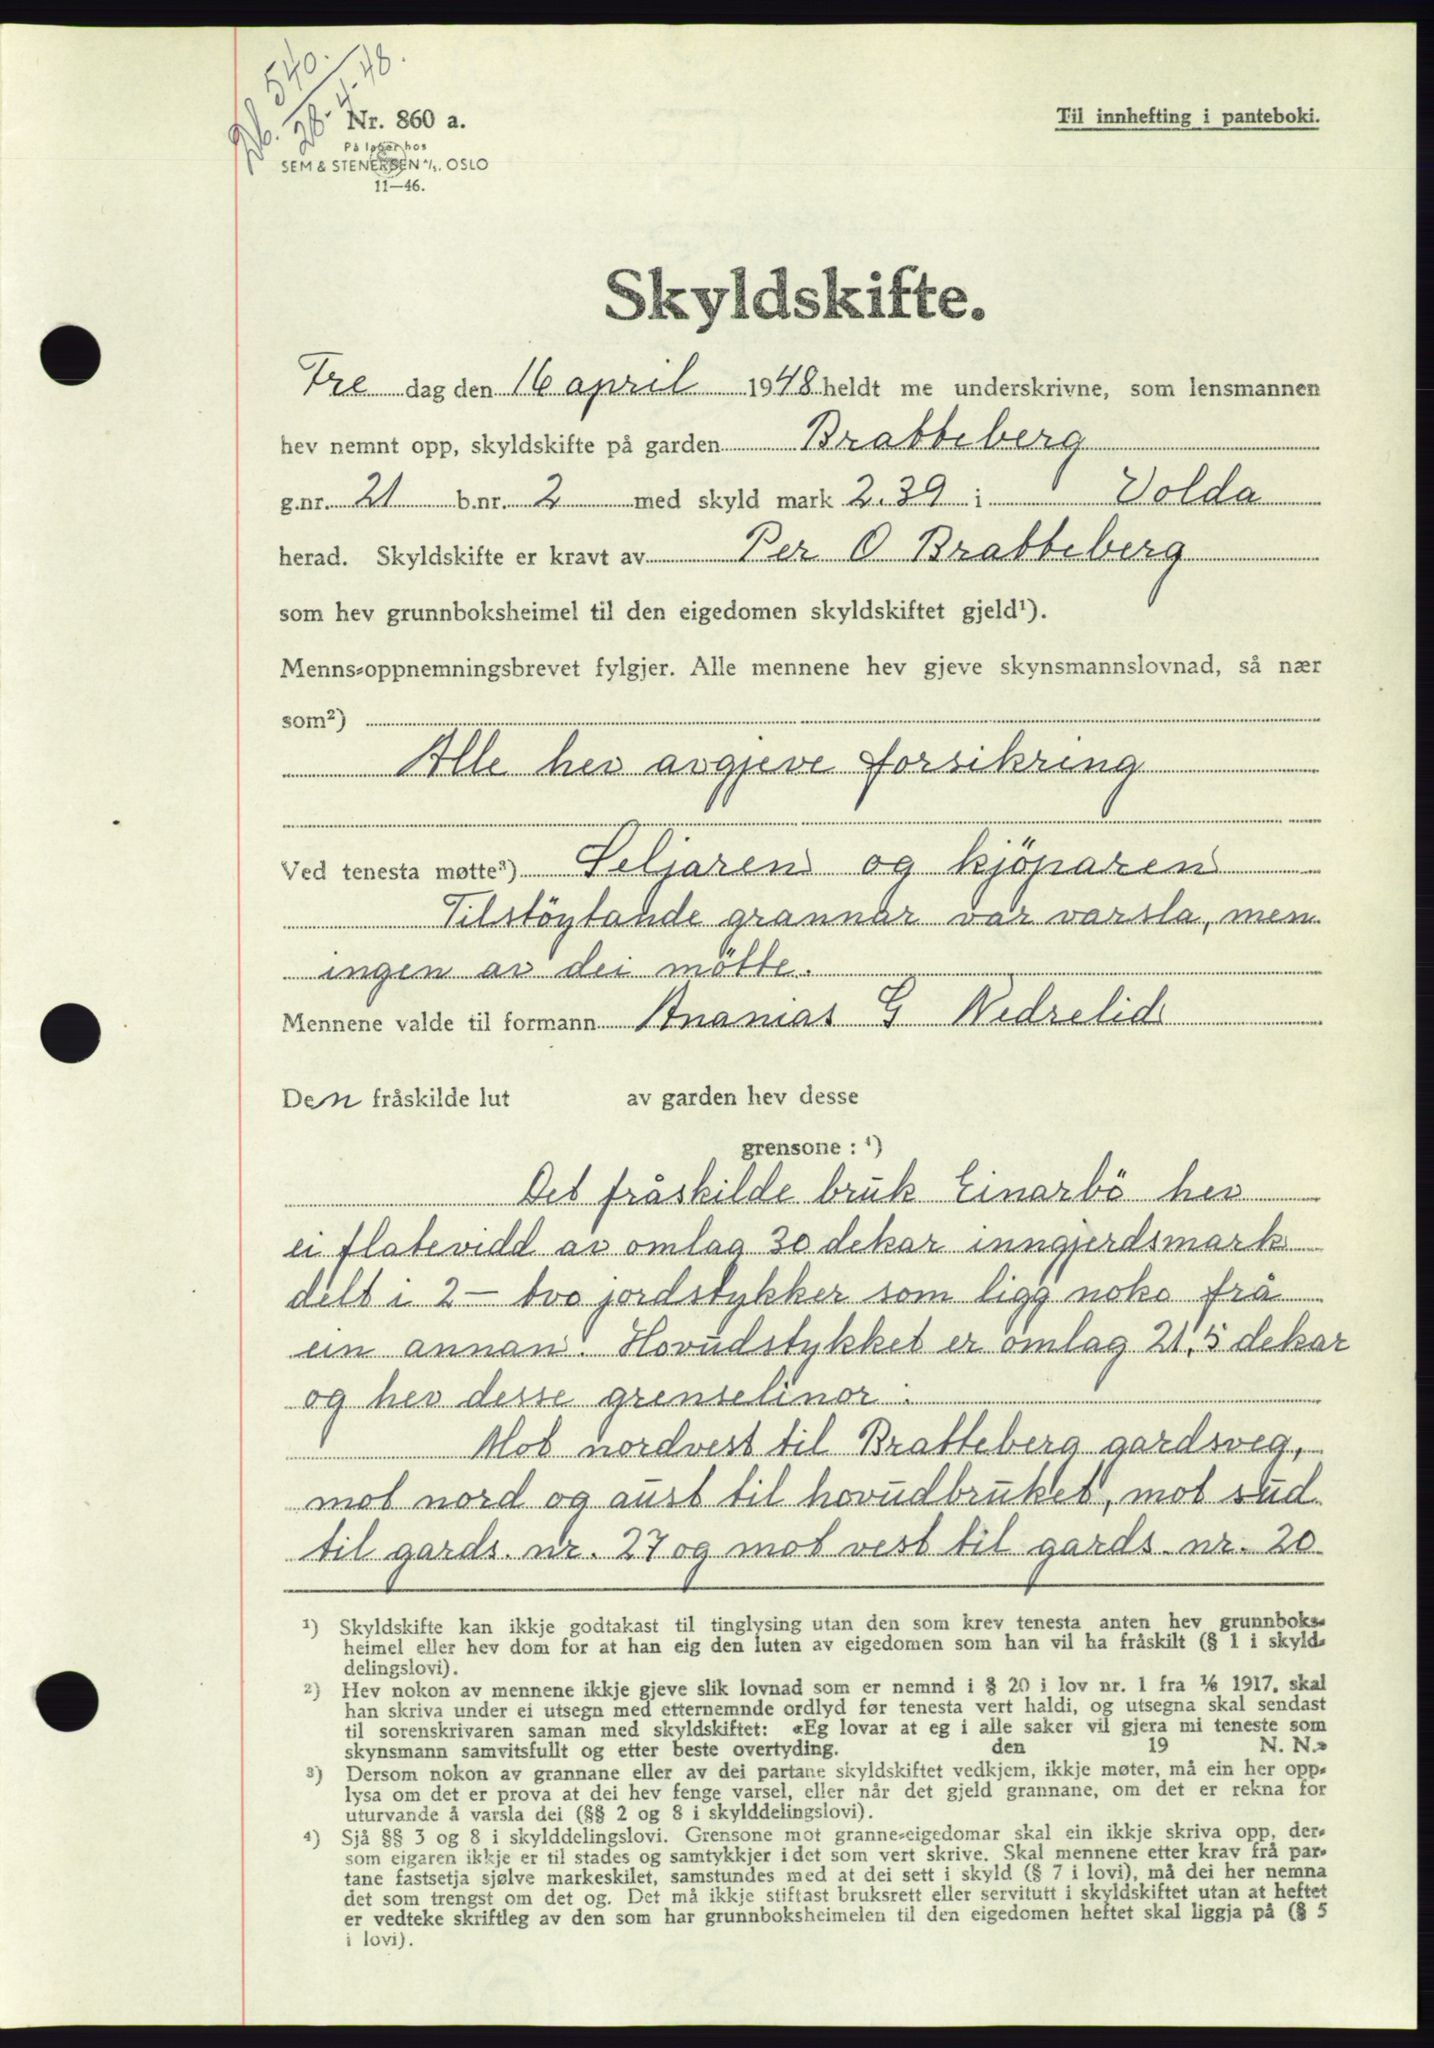 Db. 540.
28-4-48.
Nr. 860 a.
På lager hos
SEM & STENERSEN A/S. OSLO
11—46.
Til innhefting i panteboki.
Skyldskifte.
Fre dag den 16 april 1948 heldt me underskrivne, som lensmannen
hev nemnt opp, skyldskifte på garden Bratteberg
g.nr. 21 b.nr. 2 med skyld mark 2.39 i Volda
herad. Skyldskifte er kravt av Per O Bratteberg
som hev grunnboksheimel til den eigedomen skyldskiftet gjeld¹).
Menns-oppnemningsbrevet fylgjer. Alle mennene hev gjeve skynsmannslovnad, så nær
som²)
Alle hev avgjeve forsikring
Ved tenesta møtte³) Seljaren og kjöparen
Tilstöytande grannar var varsla, men
ingen av dei mötte.
Mennene valde til formann Ananias G Nedrelid
Den fråskilde lut av garden hev desse
grensone: ⁴)
Det fråskilde bruk Einarbö hev
ei flatevidd av omlag 30 dekar inngjerdsmark
delt i 2 - tvo jordstykker som ligg noko frå
ein annan. Hovudstykket er omlag 21,5 dekar
og hev desse grenselinor:
Mot nordvest til Bratteberg gardsveg,
mot nord og aust til hovudbruket, mot sud
til gards. nr. 27 og mot vest til gards. nr. 20
¹) Skyldskifte kan ikkje godtakast til tinglysing utan den som krev tenesta anten hev grunnboks-
heimel eller hev dom for at han eig den luten av eigedomen som han vil ha fråskilt (§ 1 i skyld-
delingslovi).
²) Hev nokon av mennene ikkje gjeve slik lovnad som er nemnd i § 20 i lov nr. 1 fra 1/6 1917, skal
han skriva under ei utsegn med etternemnde ordlyd før tenesta vert haldi, og utsegna skal sendast
til sorenskrivaren saman med skyldskiftet: «Eg lovar at eg i alle saker vil gjera mi teneste som
skynsmann samvitsfullt og etter beste overtyding. den 19 N. N.»
³) Dersom nokon av grannane eller av dei partane skyldskiftet vedkjem, ikkje møter, må ein her opp-
lysa om det er prova at dei hev fenge varsel, eller når det gjeld grannane, om det er rekna for
uturvande å varsla dei (§§ 2 og 8 i skylddelingslovi).
⁴) Sjå §§ 3 og 8 i skylddelingslovi. Grensone mot granne-eigedomar skal ein ikkje skriva opp, der-
som eigaren ikkje er til stades og samtykkjer i det som vert skrive. Skal mennene etter krav frå par-
tane fastsetja sjølve markeskilet, samstundes med at dei sett i skyld (§ 7 i lovi), må dei her nemna
det som trengst om det og. Det må ikkje stiftast bruksrett eller servitutt i skyldskiftet utan at heftet
er vedteke skriftleg av den som har grunnboksheimelen til den eigedomen heftet skal liggja på (§ 5
i lovi).